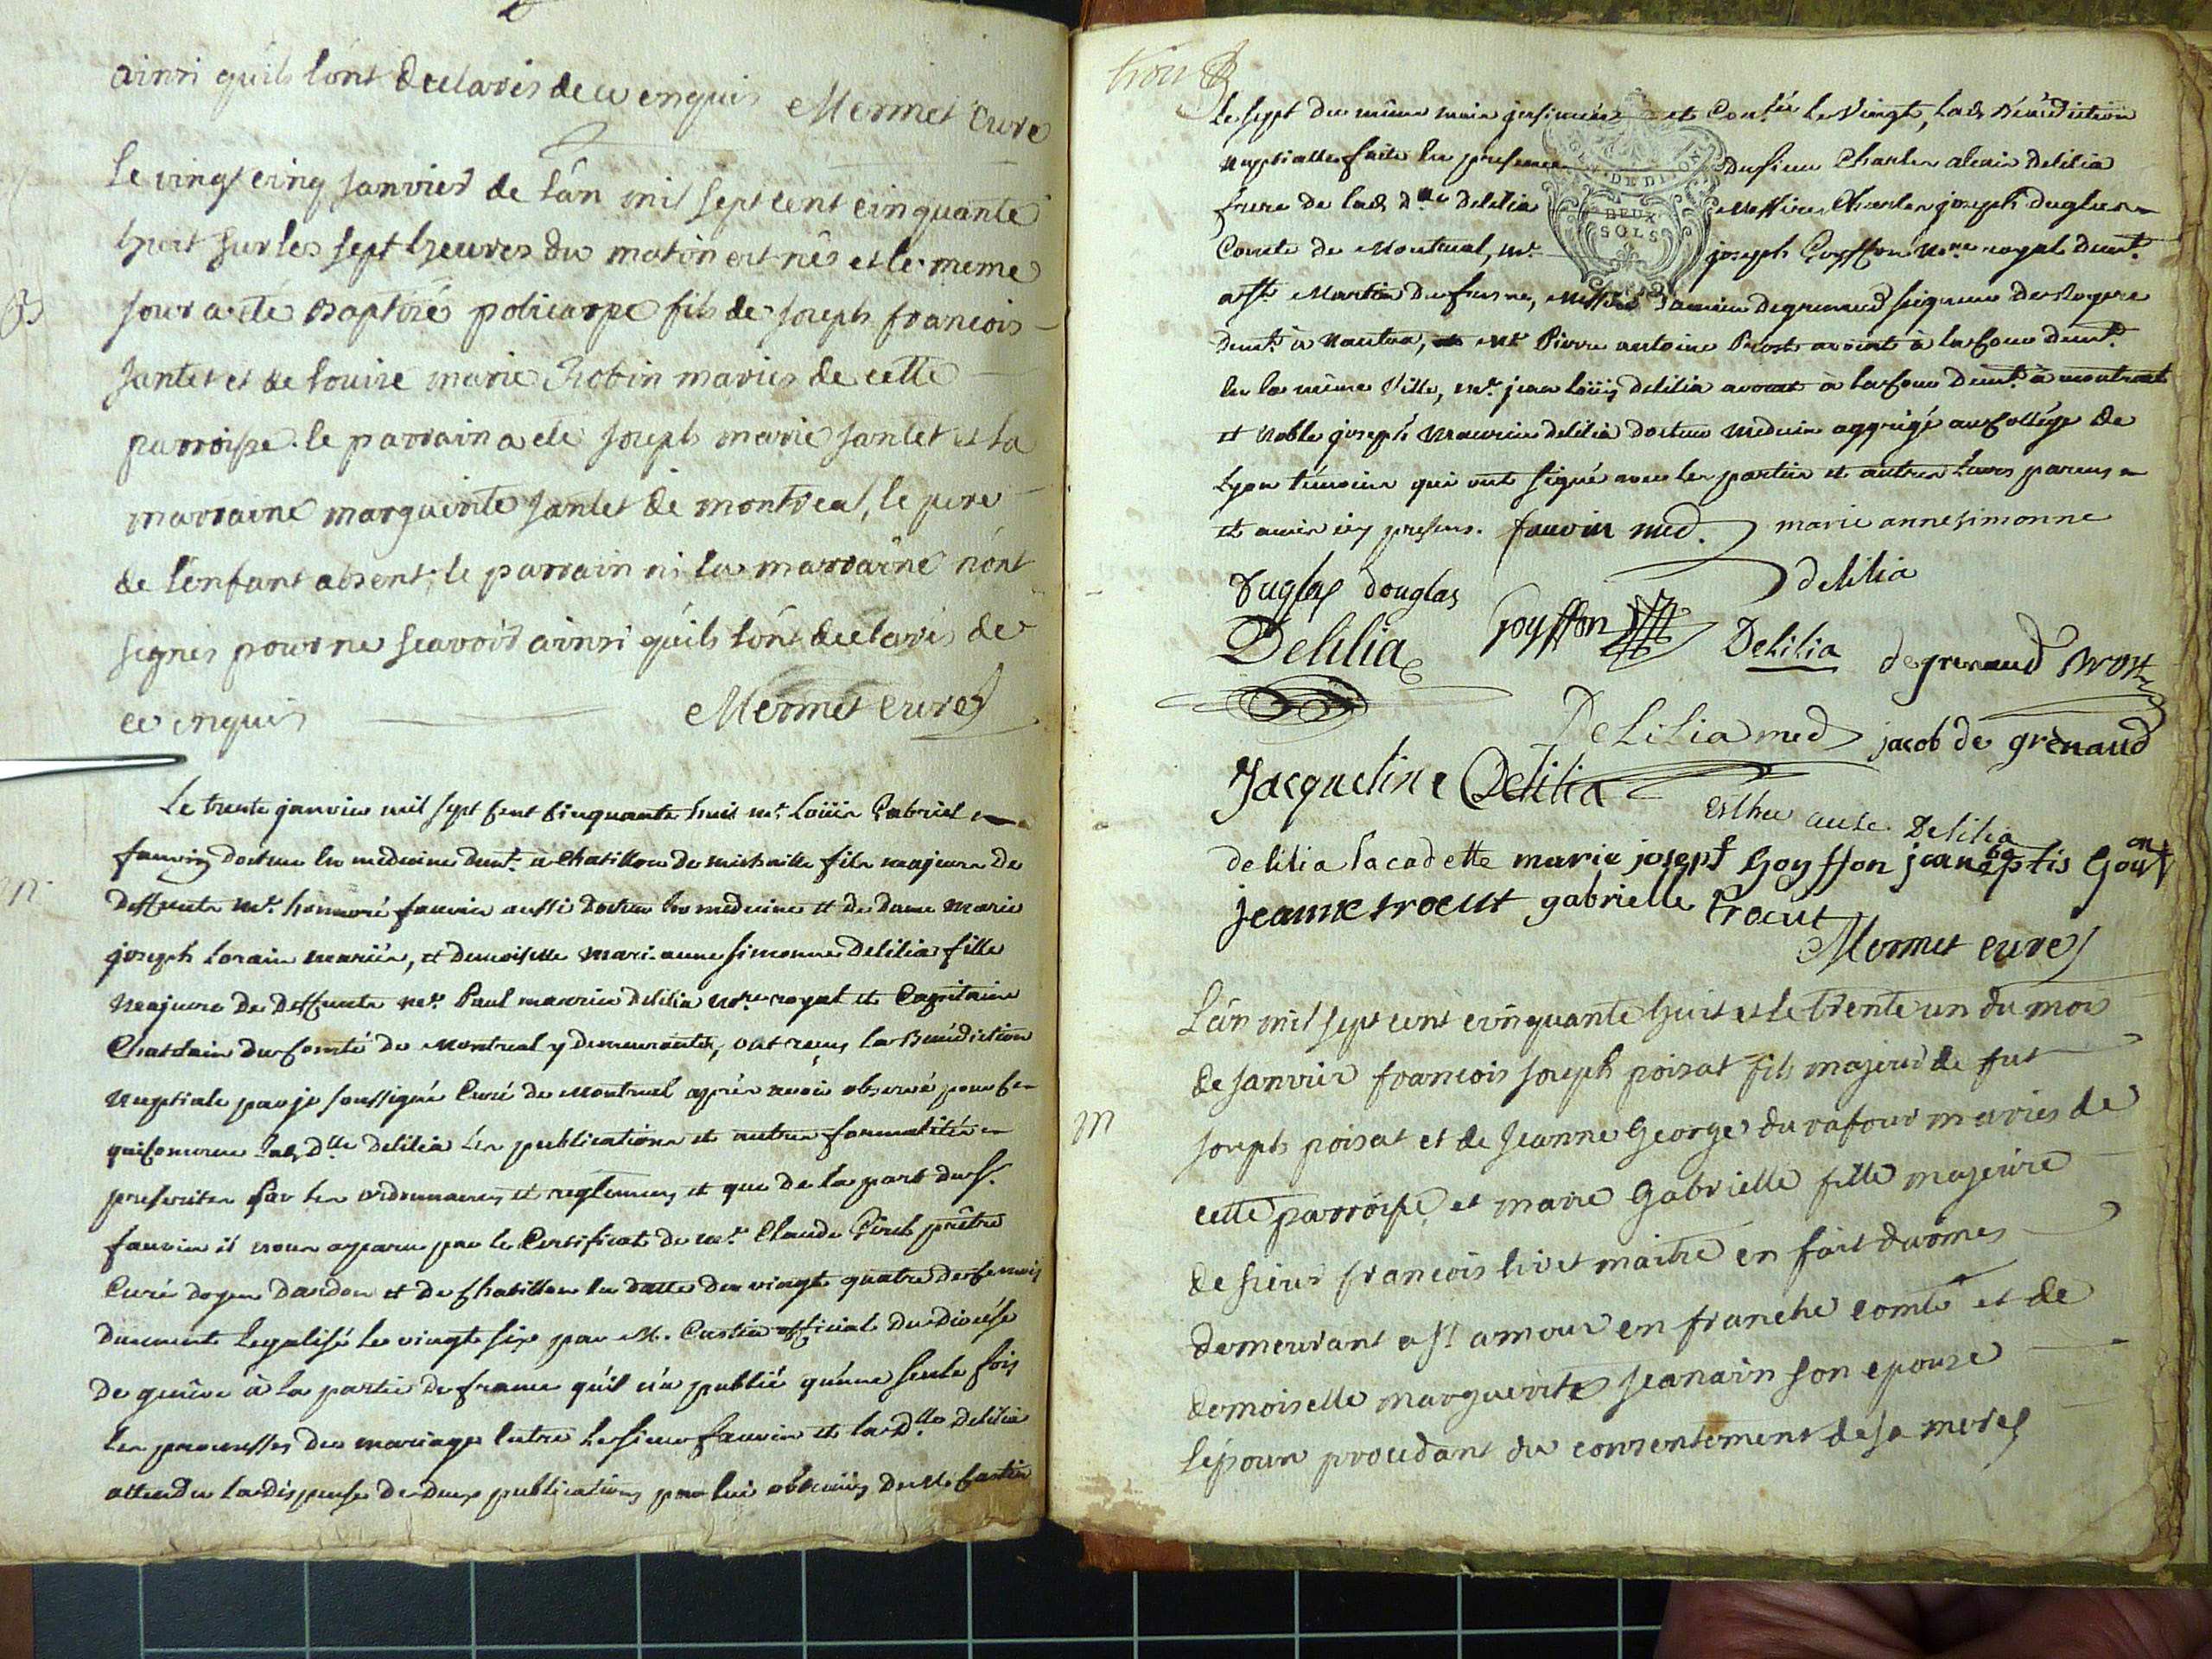 ainsi quils lont declarés de ce enquis Mermet Curé
B
Le vingt cinq janvier de lán mil sept cent cinquante
huit sur les sept heures du matin est nés et le meme
jour a eté Baptisé policarpe fils de joseph francois
Jantet et de louise marie Robin mariés de cette
parroisse. le parrain a eté joseph marie jantet et la
marraine marguerite jantet de montreal, le pere
de l'enfant absent; le parrain ni la marraine nónt
signés pour ne scavoir ainsi quils lónt declarés de
ce enquis Mermet curé
m.
Le trente janvier mil sept cent cinquante huit mr. Loüis Gabriel
fauvin docteur en medecine demt. à Chatillon de michaille fils majeur de
deffunts mr. honnoré fauvin aussi docteur en medecine et de dame Marie
joseph Lorain mariés, et demoiselle Marie anne simonne Delilia fille
Majeure de deffunts mr. Paul maurice delilia Nore. royal et Capitaine
Chatelain du comté de Montreal y demeurante, ont reçus la Bénédiction
Nuptiale par je soussigné Curé de Montreal après avoir observé pour ce
qui concerne lad. dlle delilia les publications et autres formalités
prescrites par les ordonnances et reglemens et que de la part du s.
fauvin il nous apparu par le Certificat de mr. Claude prêtre
Curé doyen Dardon et de chatillon en datte du vingt quatre du ce mois
duement legalisé le vingt six par M. Castin official du diocése
de genêve à la partie de france qu'il n'a publié qu'une seule fois
les promesses du mariage entre le sieur fauvin et la dlle. Delilia
attendu la dispense de deux publications par lui obtenües de M. Castin
trois
Le sept du même mois insinuée et Conlée le vingt, lad. Bénédiction
nuptialle faite en presence du sieur Charles Delilia
frere de lad. dlle. delilia Messire Charles joseph duglas
Comte de Montreal, mr. joseph Goyffon Nore. royal demt.
a st. Martin du fresne, Messire de grenaud seigneur de Rogere
demt. à Nantua, mr. Pierre antoine Prost avocat à la cour demt.
en la même Ville, mr. jean loüis delilia avocat à la cour demt. à montreal
et Noble joseph Maurice delilia docteur Medecin aggrégé au collége de
Lyon témoins qui ont signé avec les parties et autres leurs parens
et amis icy presens. fauvin med. marie anne simonne
delilia
Duglas douglas
GEN. DE DIJON
DEUX
SOLS
Delilia Goyffon Delilia degrenaud Prost
Delilia med jacob de grenaud
Jacqueline Delilia
Delilia
delilia la cadette marie josept Goyffon jean baptis
jeanne trocut gabrielle trocut
Mermet curé
m
Lán mil sept cent cinquante huit et le trente un du mois
de janvier francois joseph poisat fils majeur de fut
joseph poisat et de jeanne George du rafour mariés de
cette parroisse, et marie Gabrielle fille majeure
de sieur francois livet maitre en fait darmes
demeurant a St amour en franche comté et de
demoiselle marguerite jeanain son epouse
lépoux procedant du consentement de sa mere